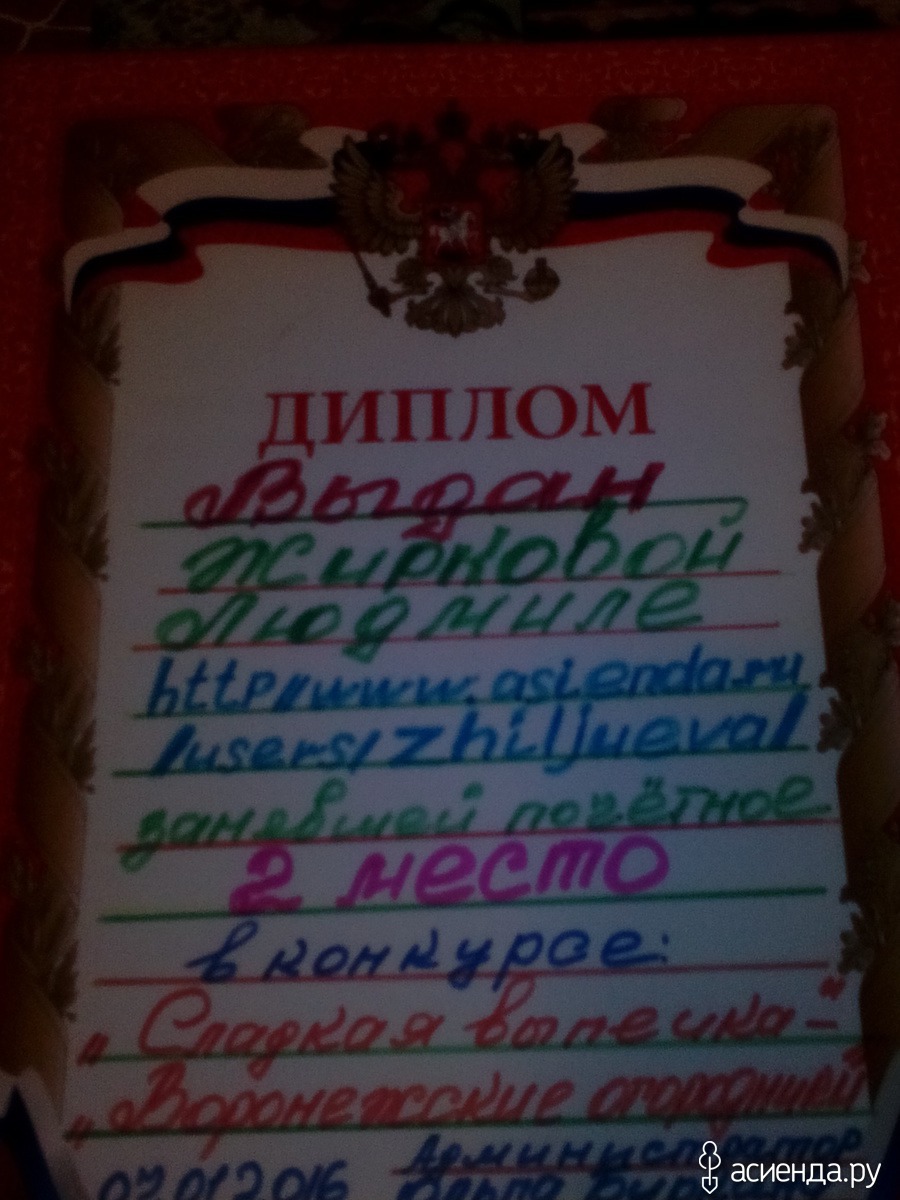 ДИПЛОМ
Выдан
Жирковой
Людмиле
http//www.asienda.ru
/users/zhiljueva/
занявшей почётное
2 место
в конкурсе:
"Сладкая выпечка-"
"Воронежские огородники"
07.01.2016 Администратор
Ольга
асиенда.ру